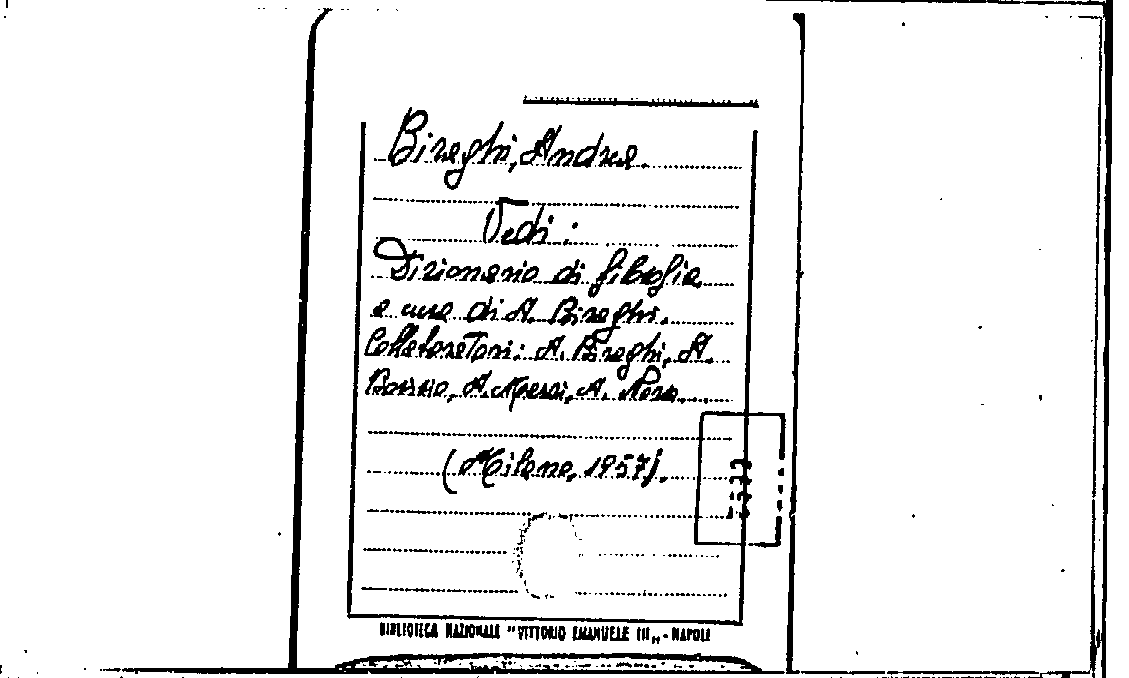 Biraghi, Andrea.
Vedi:
Dizionario di filosofia
a cura di A. Biraghi.
Collaboratori: A. Biraghi, A.
A. A.
(Milano, 1957).
BIBLIOTECA NAZIONALE "VITTORIO EMANUELE III" - NAPOLI